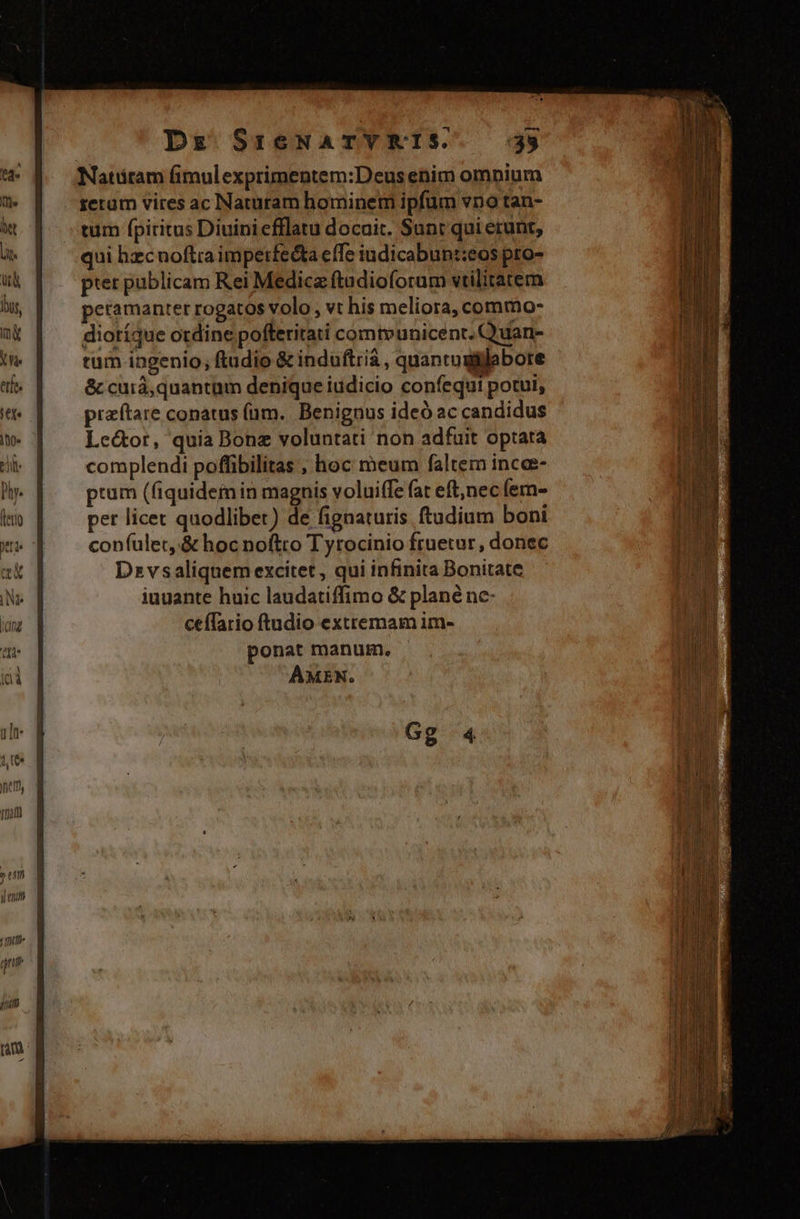 DE SIGNATVRIS. 35
Naturam ſimul exprimentem: Deus enim omnium
rerum vires ac Naturam hominem ipſum vno tan-
tùm ſpiritus Diuini efflatu docuit. Sunt qui erunt,
qui hæc noſtra imperfecta eſſe iudicabunt: eos pro-
pter publicam Rei Medicæ ſtudioſorum vtilitatem
peramanter rogatos volo, vt his meliora, commo-
dioríque ordine poſteritati communicent. Quan-
tùm ingenio, ſtudio & induſtriâ, quantum labore
& curâ, quantùm denique iudicio conſequi potui,
præſtare conatus ſum. Benignus ideò ac candidus
Lector, quia Bonæ voluntati non adfuit optata
complendi poſſibilitas, hoc meum ſaltem incœ-
ptum (ſiquidem in magnis voluiſſe ſat eſt, nec ſem-
per licet quodlibet) de ſignaturis ſtudium boni
conſulet, & hoc noſtro Tyrocinio fruetur, donec
DEVS aliquem excitet, qui infinita Bonitate
iuuante huic laudatiſſimo & planè ne-
ceſſario ſtudio extremam im-
ponat manum.
AMEN.
Gg 4